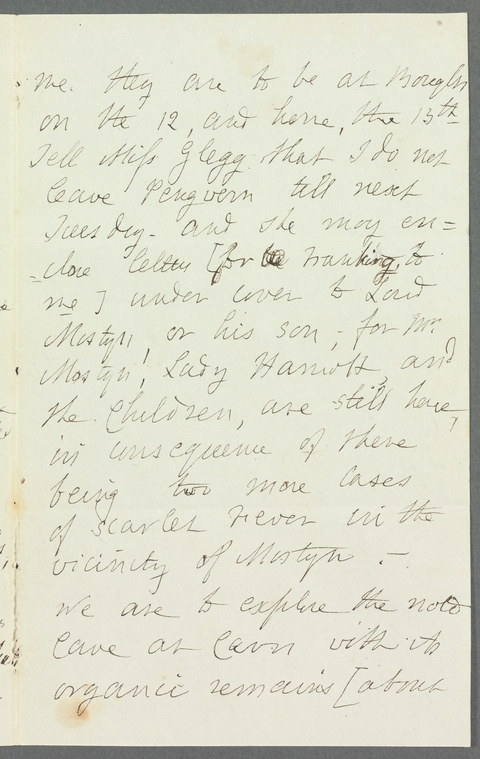 me. they are to be at Boughn
on the 12, and here, the 13th
Tell Miss Glegg that I do not
leave Pengwern till next
Tuesday - and she may en=
=close letters [for franking, to
me] under cover to Lord
Mostyn, or his son; for Mr.
Mostyn, Lady Harriott, and
the Children, are still here,
in consequence of there
being two more cases
of scarlet Fever in the
vicinity of Mostyn. -
We are to explore the
Cave at with its
organic remains [about